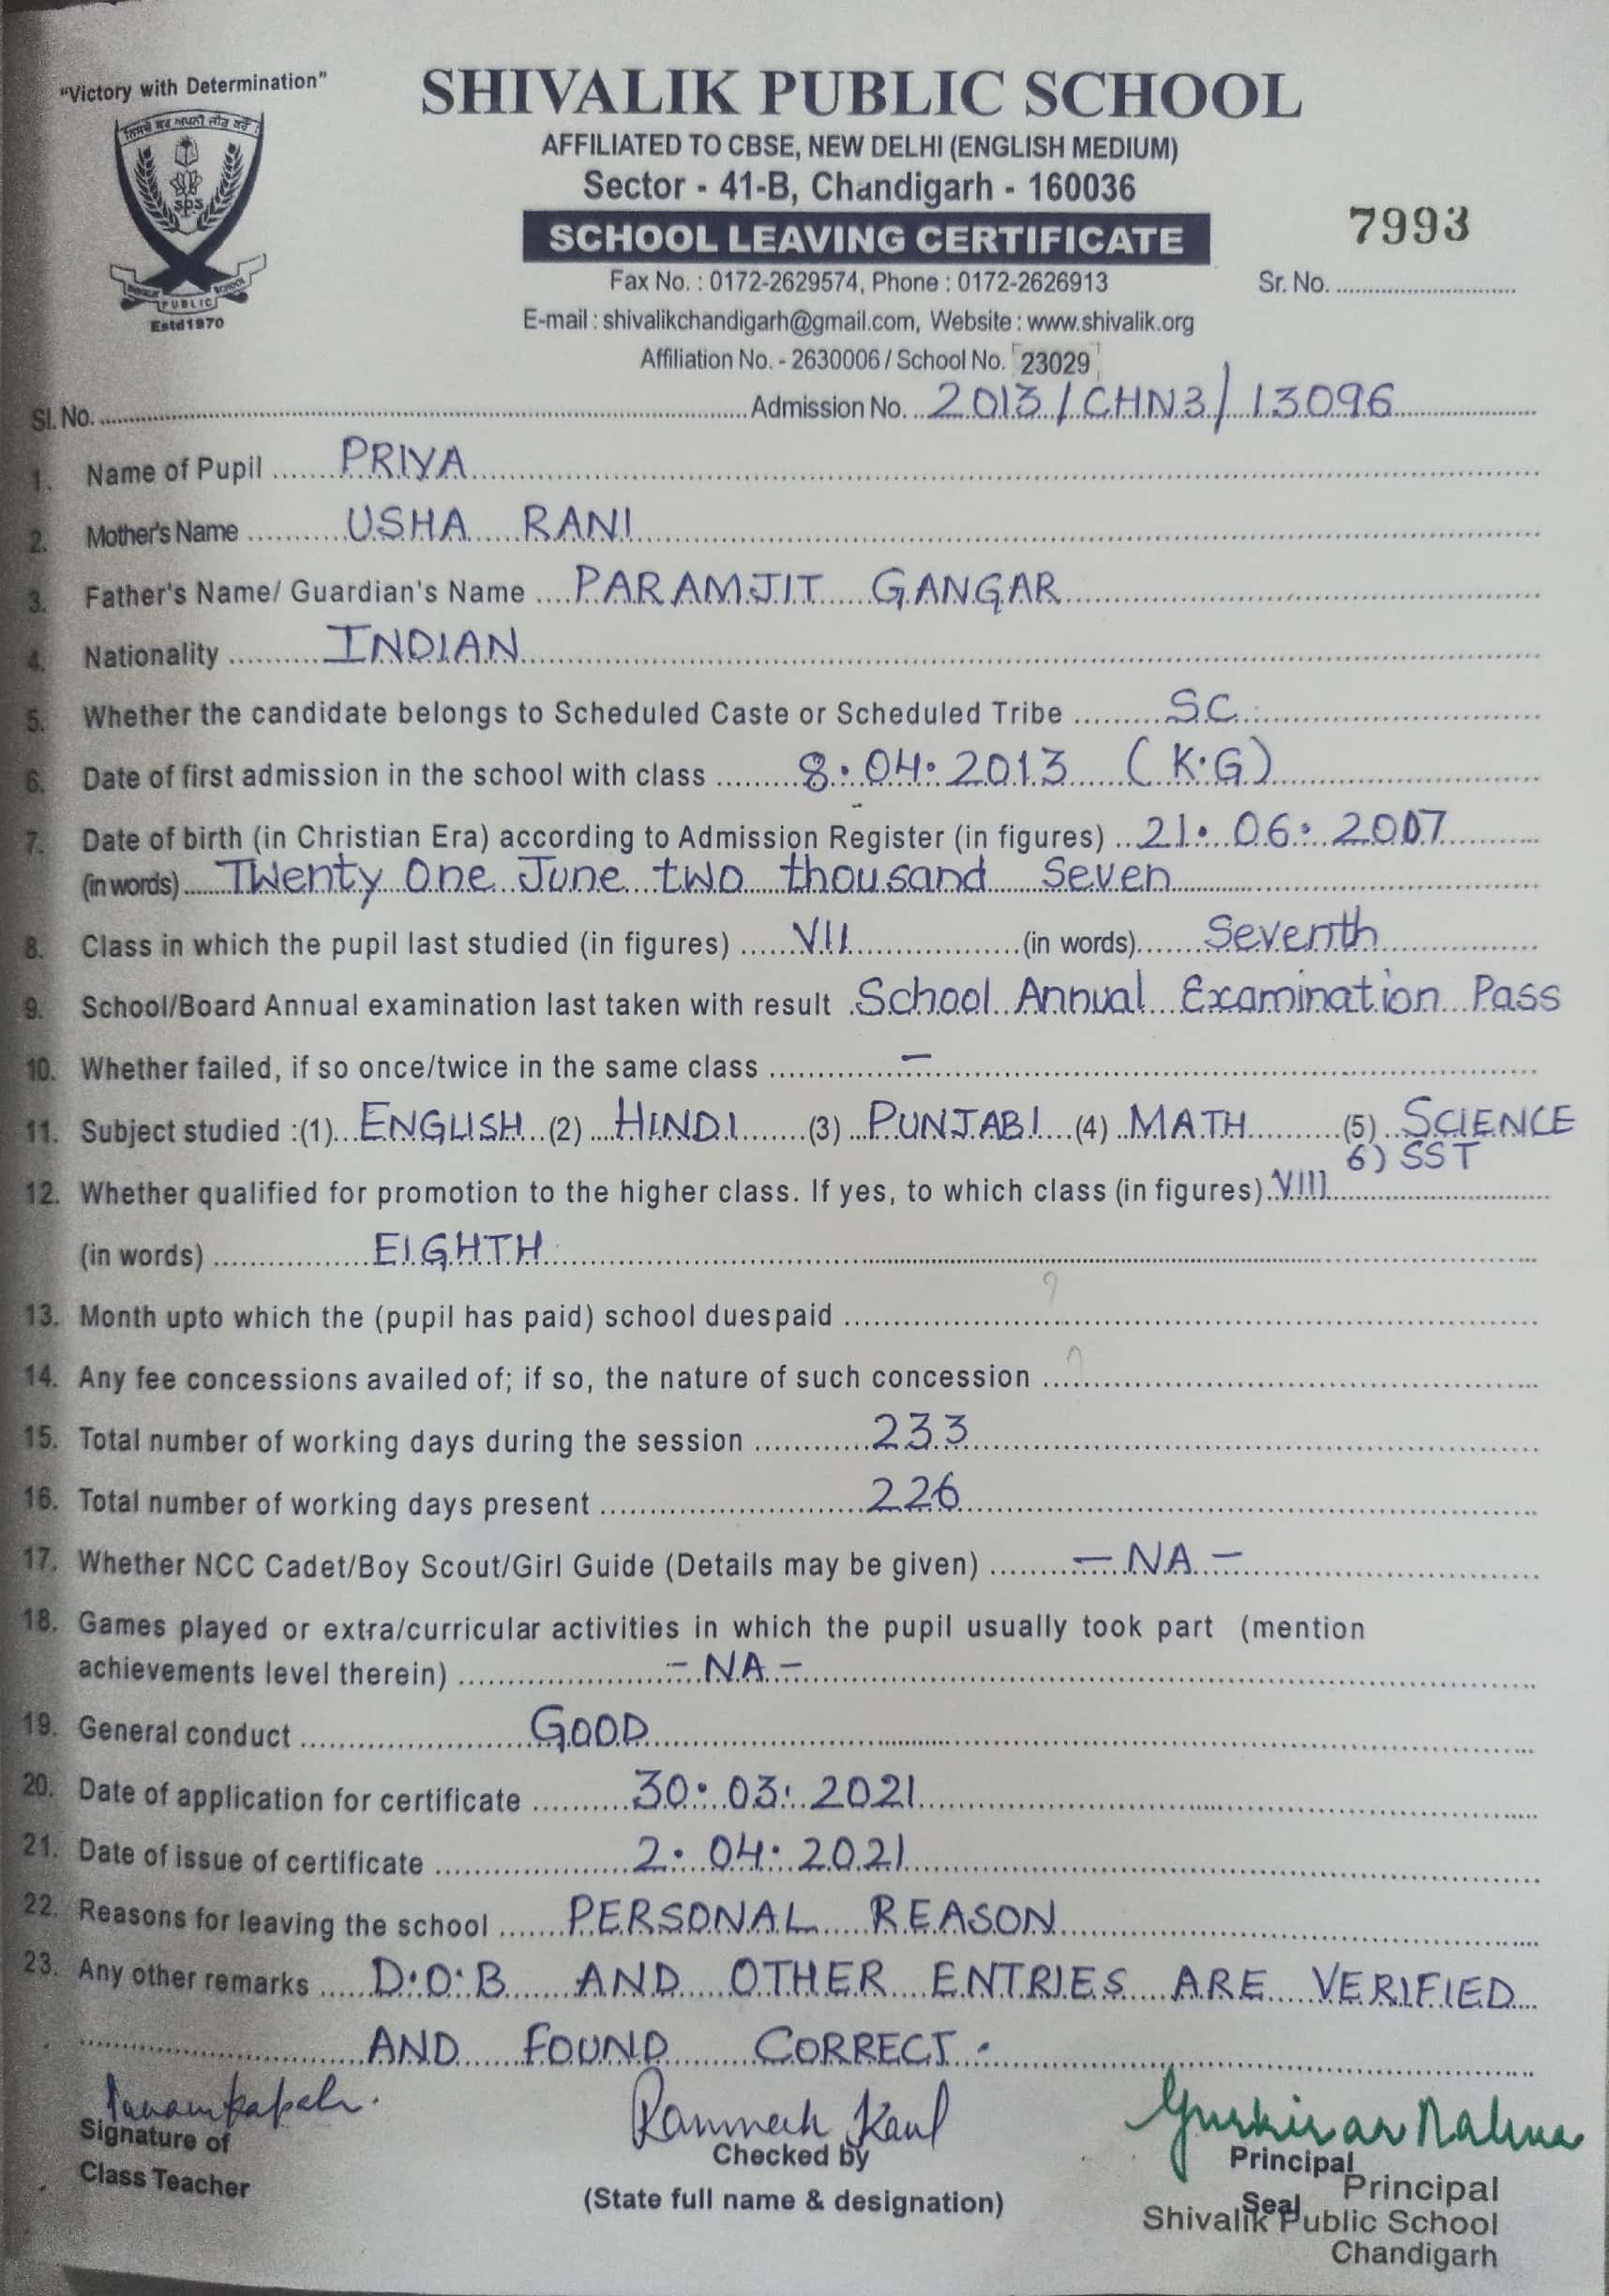 "Victory with Determination"
SHIVALIK PUBLIC SCHOOL
AFFILIATED TO CBSE, NEW DELHI (ENGLISH MEDIUM)
Sector - 41-B, Chandigarh - 160036
SCHOOL LEAVING CERTIFICATE
7993
SPS
PUBLIC SCHOOL
Estd 1970
Fax No. : 0172-2629574, Phone : 0172-2626913
Sr. No.
E-mail : shivalikchandigarh@gmail.com, Website : www.shivalik.org
Affiliation No. - 2630006 / School No. 23029
Sl. No. Admission No. 2013/CHN3/13096
1. Name of Pupil PRIYA
2. Mother's Name USHA RANI
3. Father's Name/ Guardian's Name PARAMJIT GANGAR
4. Nationality INDIAN
5. Whether the candidate belongs to Scheduled Caste or Scheduled Tribe S.C.
6. Date of first admission in the school with class 8.04.2013 (K.G)
7. Date of birth (in Christian Era) according to Admission Register (in figures) 21.06.2007
(in words) Twenty One June two thousand Seven
8. Class in which the pupil last studied (in figures) VII (in words) Seventh
9. School/Board Annual examination last taken with result School Annual Examination Pass
10. Whether failed, if so once/twice in the same class –
11. Subject studied :(1) ENGLISH (2) HINDI (3) PUNJABI (4) MATH (5) SCIENCE
6) SST
12. Whether qualified for promotion to the higher class. If yes, to which class (in figures) VIII
(in words) EIGHTH
13. Month upto which the (pupil has paid) school dues paid
14. Any fee concessions availed of; if so, the nature of such concession
15. Total number of working days during the session 233
16. Total number of working days present 226
17. Whether NCC Cadet/Boy Scout/Girl Guide (Details may be given) – NA –
18. Games played or extra/curricular activities in which the pupil usually took part (mention
achievements level therein) – NA –
19. General conduct GOOD
20. Date of application for certificate 30.03.2021
21. Date of issue of certificate 2.04.2021
22. Reasons for leaving the school PERSONAL REASON
23. Any other remarks D.O.B AND OTHER ENTRIES ARE VERIFIED
AND FOUND CORRECT.
Signature of
Class Teacher
Checked by
(State full name & designation)
Principal
Seal
Principal
Shivalik Public School
Chandigarh